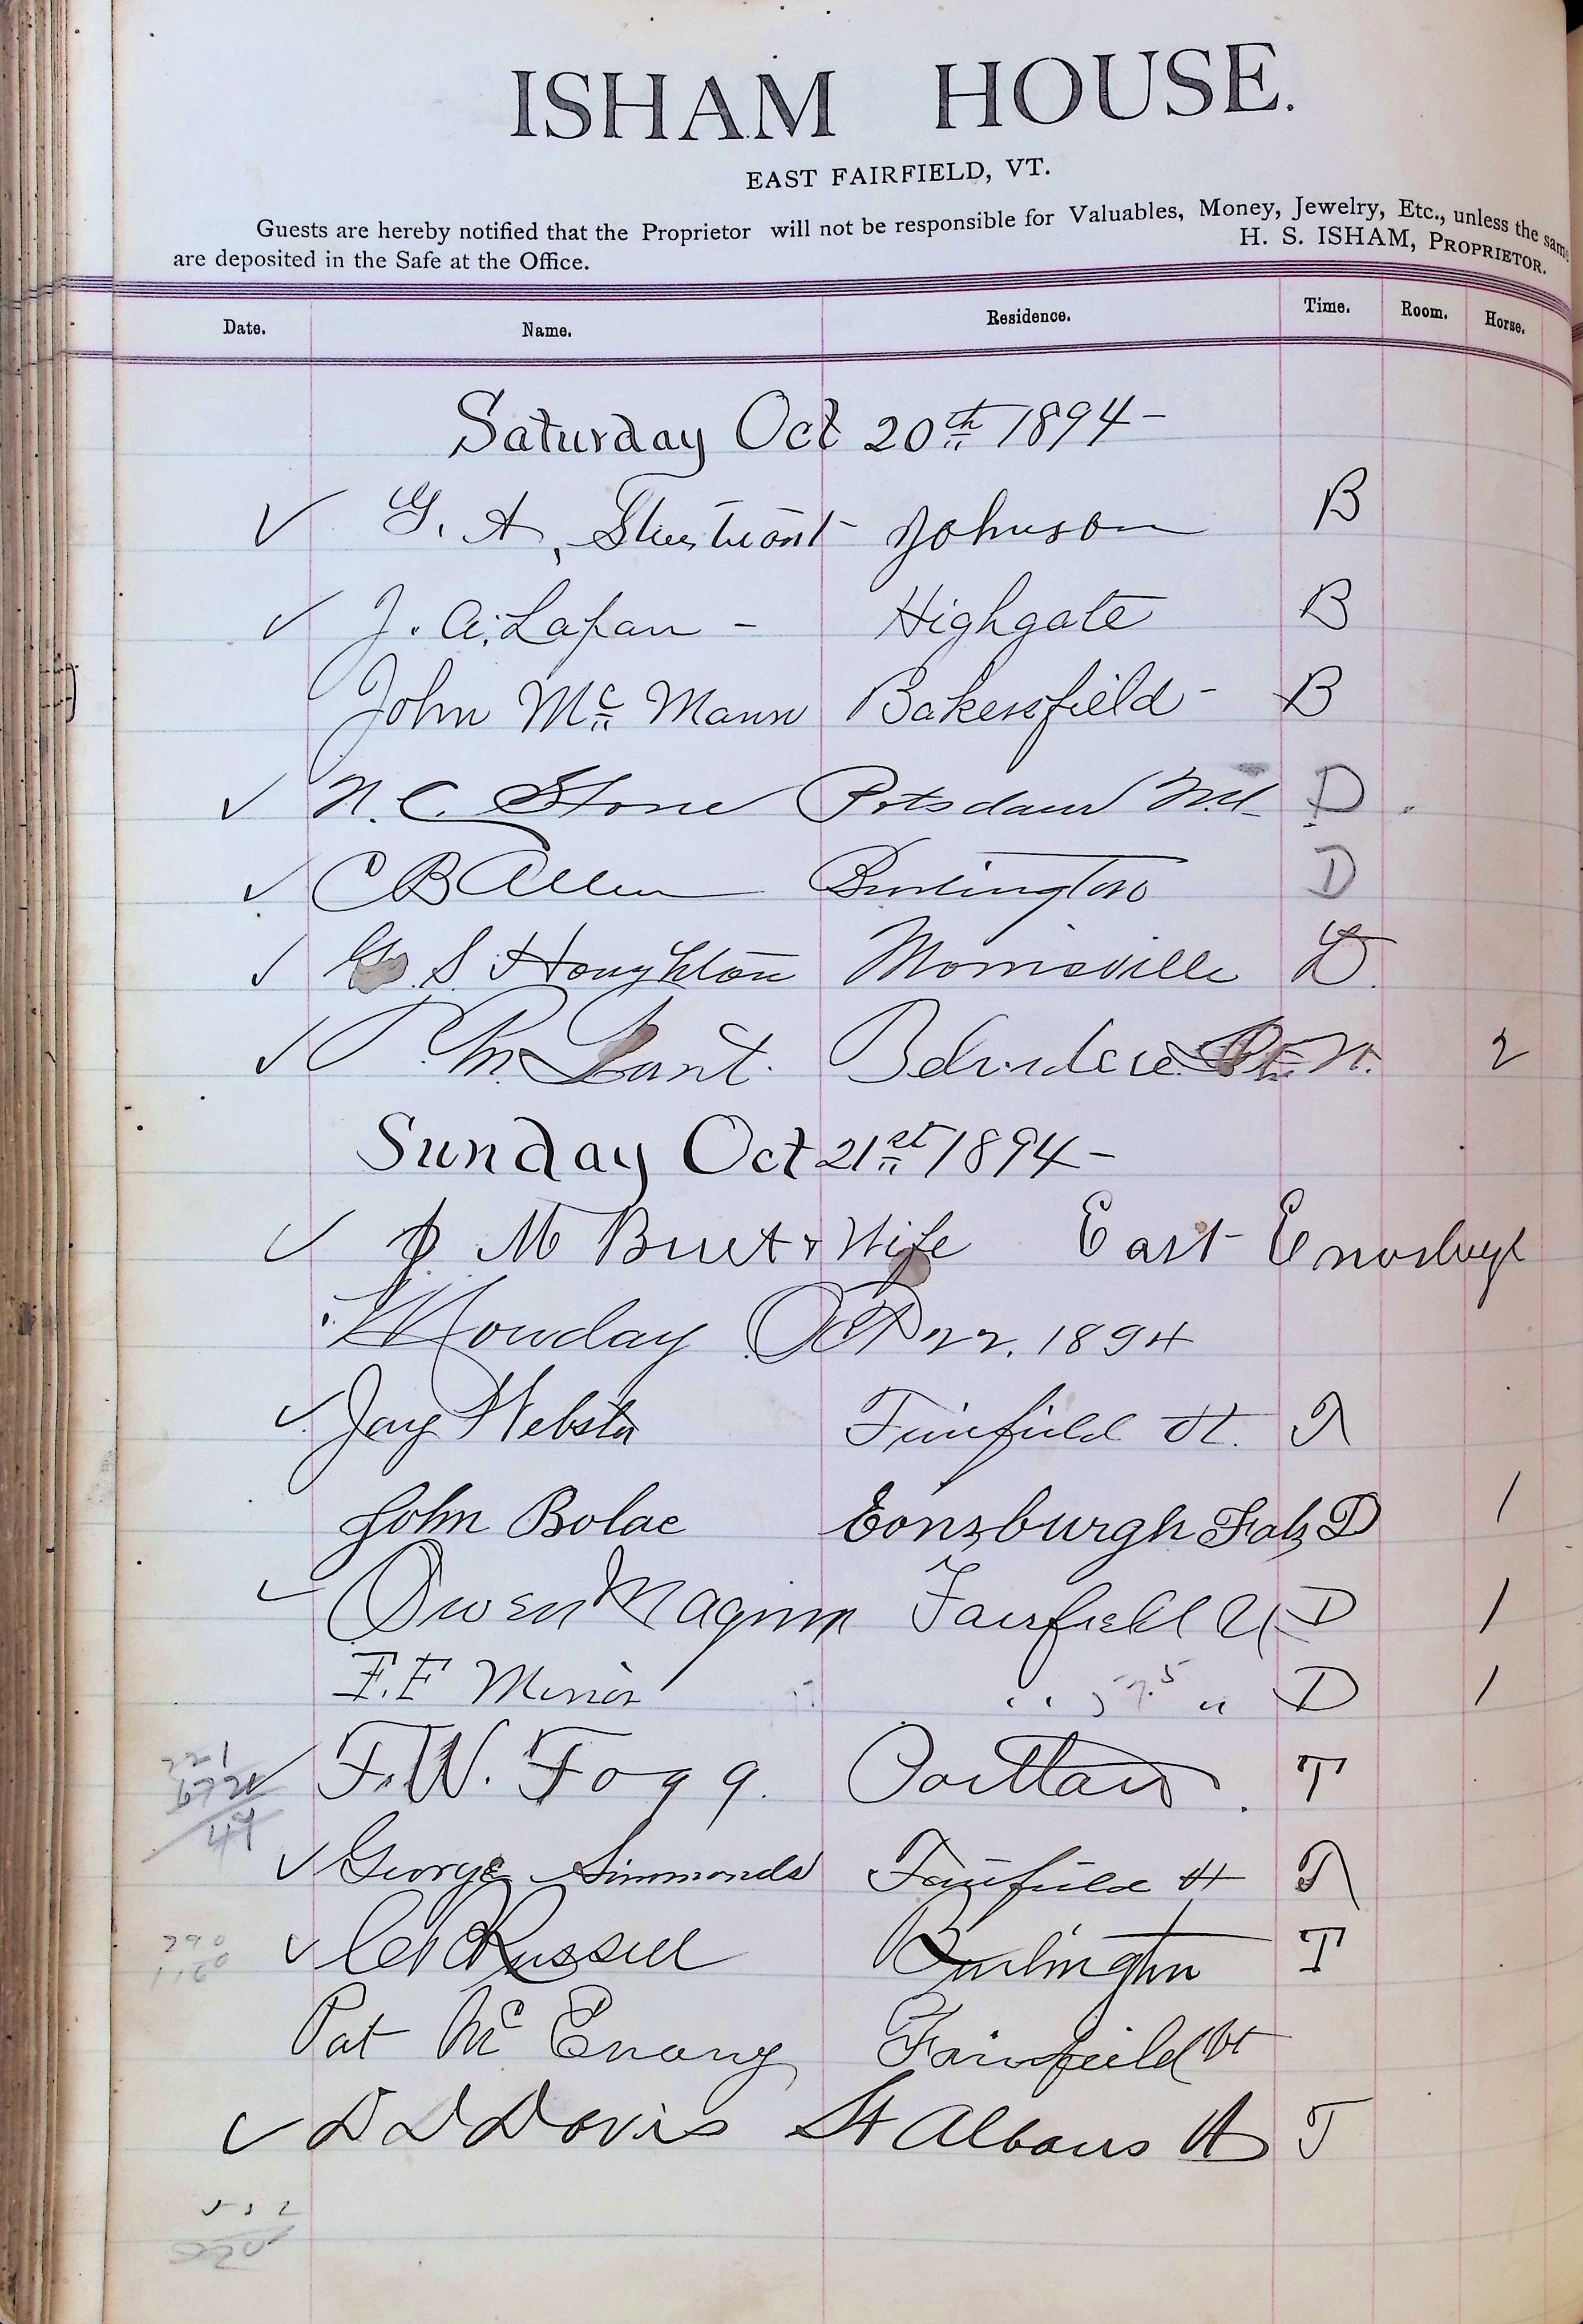 ISHAM HOUSE.
EAST FAIRFIELD, VT.
Guests are hereby notified that the Proprietor will not be responsible for Valuables, Money, Jewelry, Etc., unless the same
are deposited in the Safe at the Office.
H. S. ISHAM, PROPRIETOR.
Date. Name. Residence. Time. Room. Horse.
Saturday Oct 20th 1894-
✓ G. A. Johnson B
✓ J. A. Lafan - Highgate B
John Mc Mann Bakersfield - B
✓ N. C. Stone Potsdam D
✓ C B Allen Burlington D
✓ S Houghton Morrisville D.
✓ P. M. Belvidere 2
Sunday Oct 21st 1894-
✓ M Burt & Wife East Enosburgh
Monday Oct 22. 1894
✓ Jay Webster Fairfield Vt. T
John Bolac Eonsburgh Fals D 1
✓ Owen Maginn Fairfield D 1
F. F Minor " " D 1
✓ F. W. Fogg. Portland. T
✓ George Simmonds Fairfield Vt T
✓ Russell Burlington T
Pat Mc Enany Fairfield Vt
✓ D D Davis St Albans Vt T